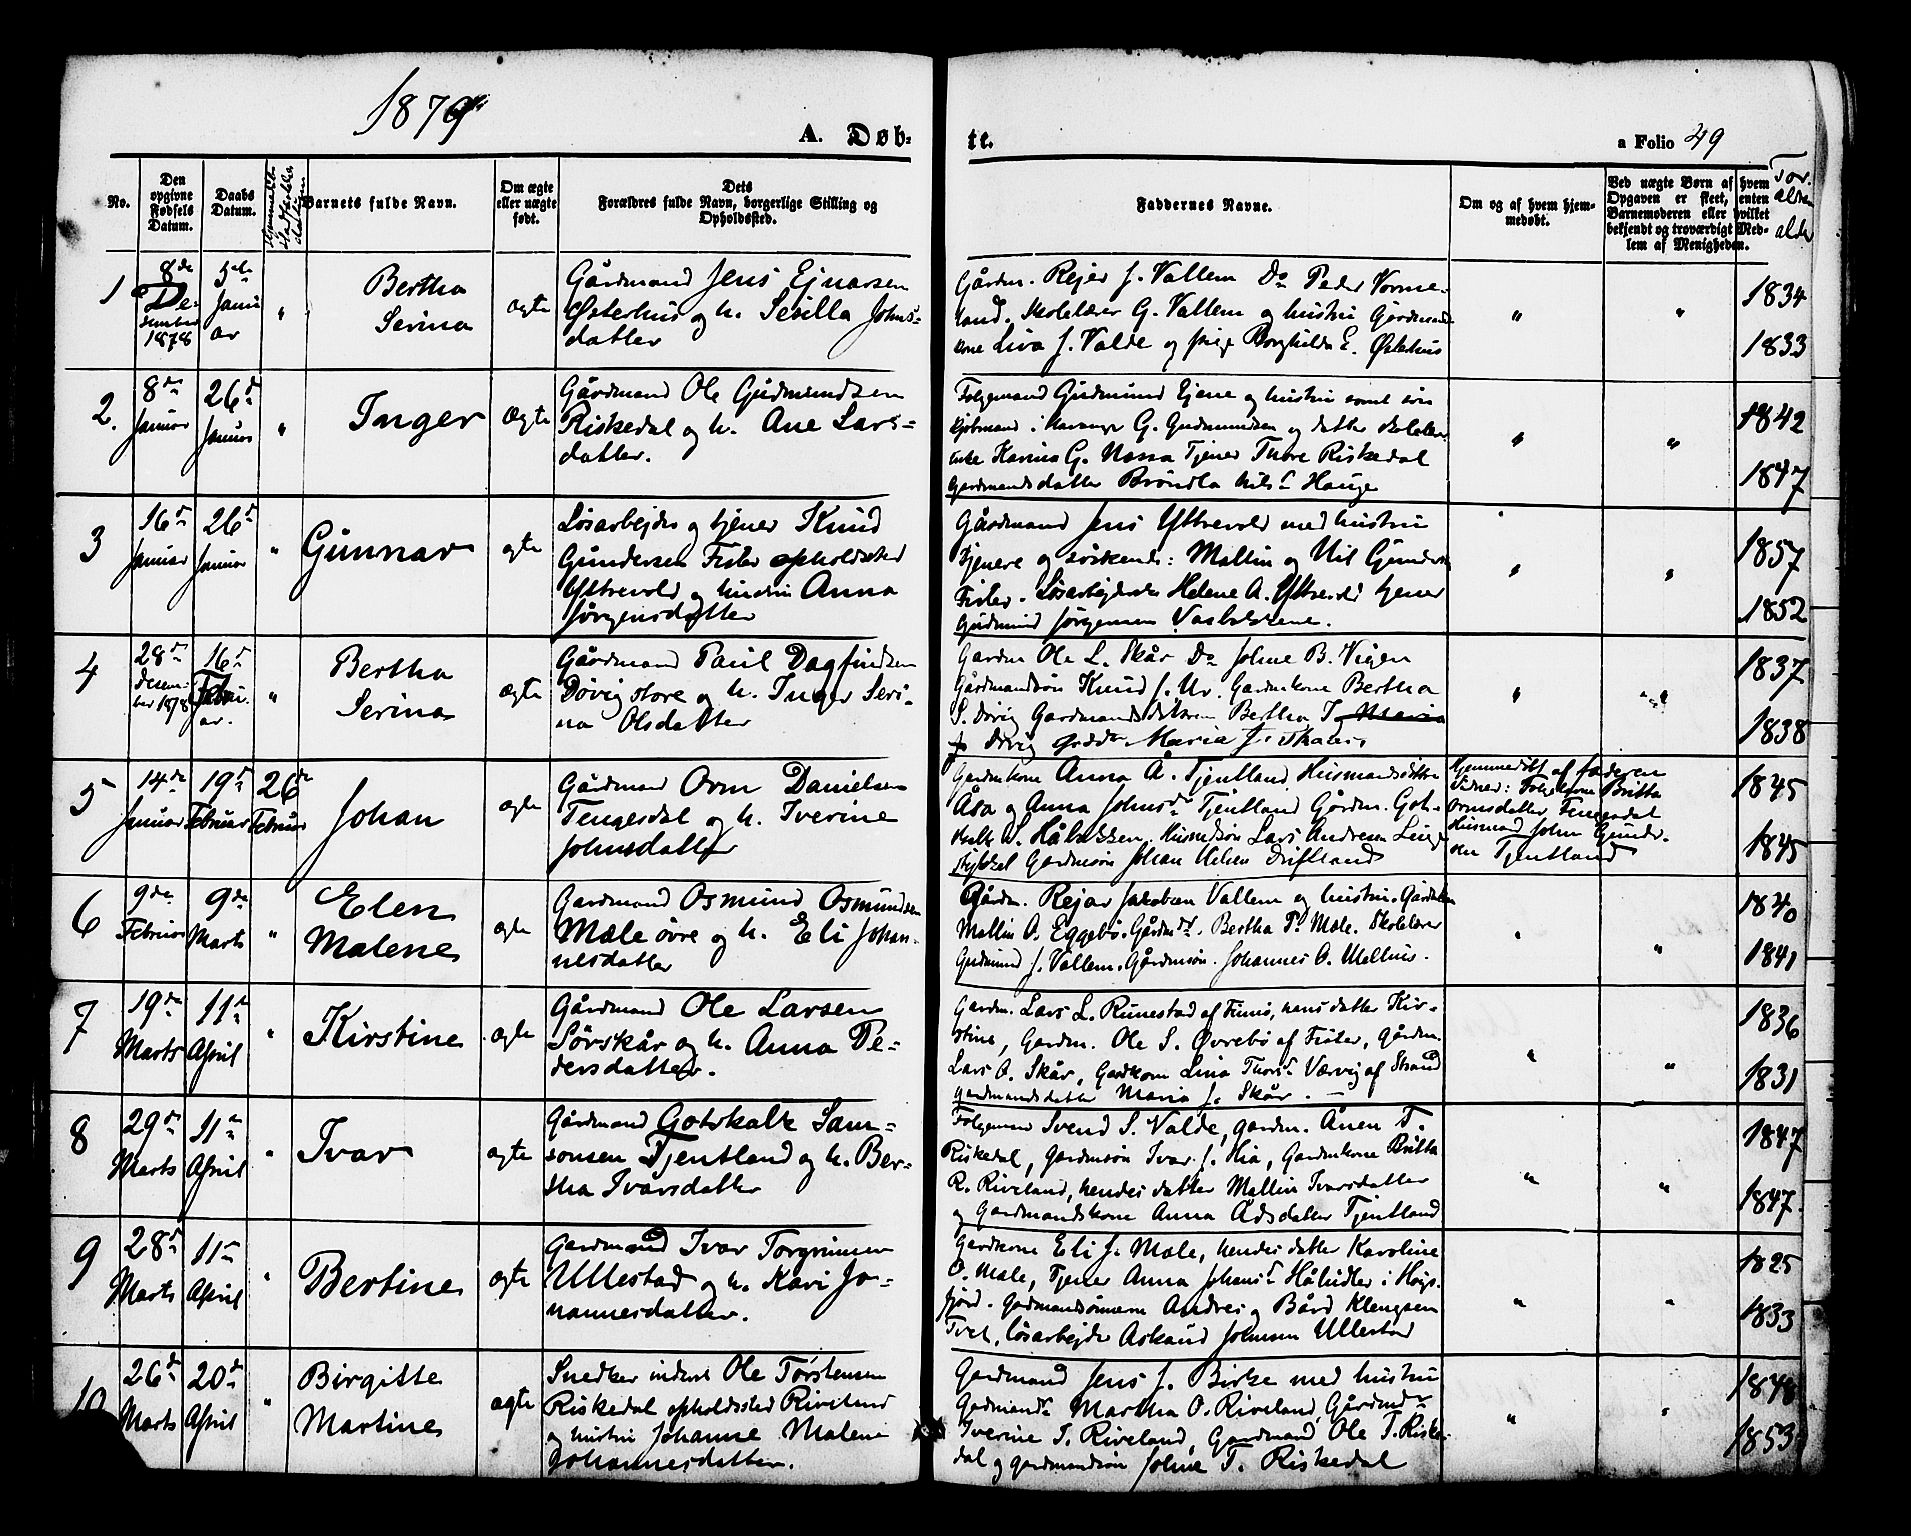 1879
A. Døb-
te.
a Folio 49
No.
Den opgivne Fødsels Datum.
Daabs Datum.
Barnets fulde Navn.
Om ægte eller uægte født.
Dets Forældres fulde Navn, borgerlige Stilling og Opholdssted.
Faddernes Navne.
Om og af hvem hjemmedøbt.
Ved uægte Børn af hvem Opgaven er skeet, enten Barnemoderen eller hvilket bekjendt og troværdigt Medlem af Menigheden.
Forældrenes alder
1
8de Desember 1878
5te Januar
"
Bertha
Serina
ægte
Gårdmand Jens Ejnarsen
Østerhus og h. Sevilla Johns-
datter
Gårdm. Rejer J. Vallem Do Peder Vorme-
land. Skolelærer G. Vallem og hustru Gårdmands
kone Liva J. Valde og pige Borghilda E. Østehus
"
"
1834
1833
2.
8de Januar
26d Januar
"
Inger
Ægte
Gårdmand Ole Gudmundsen
Riskedal og h. Ane Lars-
datter.
Folgemand Gudmund Ejene og hustru samt søn
kjøbmand i Stavanger G. Gudmundsen og datter skolelærer-
enke Karina G. Nessa Tjener Thore Riskedal
Gardmandsdatter Brøndla Nilsd Hauge
"
"
1842
1847
3
16d Januar
26d Januar
"
Gunnar
ægte
Løsarbejder og tjener Knud
Gundersen Fister opholdssted
Yttrevold og hustru Anna
Jørgensdatter
Gårdmand Jens Yttrevold med hustru
tjenere og søskende: Mallin og Nil Gunders
Fister. Løsarbejderske Helene A. Yttrevold tjener
Gudmund Jørgensen
"
"
1857
1852
4
28d desember 1878
16d Februar.
"
Bertha
Serina
ægte
Gårdmand Paul Dagfindsen
Døvig store og h. Inger Seri-
na Olsdatter
Gardm Ole L. Skår Do Johne B. Vigen
Gårdmandsøn Knud J. Ur. Gardmkone Bertha
S. Døvig Gardmandsdøtrene Bertha T. Maria
Døvig Maria J. Skaar.
"
"
1837
1838
5
14de Januar
19d Februar
26de Februar
Johan
ægte
Gårdmand Orm Danielsen
Tengesdal og h. Iverine
Johnsdatter
Gardmkone Anna Å. Tjentland Husmandsdøttre
Åsa og Anna Johnsd Tjentland Gårdm. Got-
skalk S. Husmdsøn Lars Andreas
Gardmsøn Johan Nilsen
Hjemmedøbt af faderen
Vidner: Folgekone Britta
Ormsdatter Tengesdal
Husmand John Gunder-
sen Tjentland
1845
1845
6
9de Februar
9de Marts
"
Elen
Malene
ægte
Gardmand Osmund Osmundsen
Mæle øvre og h. Eli Johan-
nesdatter
Gårdm. Rejar Jakobsen Vallem og hustru. Gårdkone
Mallin O. Eggebø. Gårdmdt. Bertha P. Mæle. Skolelærer
Gudmund J. Vallem. Gårdmsøn. Johannes O. Mellus.
"
1840
1841
7
19de Marts
11te April
"
Kirstine
ægte
Gårdmand Ole Larsen
Sørskår og h. Anna Pe-
dersdatter.
Gardm. Lars L. Runestad af Finnø, hans datter Kir-
stine, Gardm. Ole S. Øvrebø af Fister, Gårdm.
Lars O. Skår, Gardkone Lina Thorsd Værvig af Strand
gardmandsdatter Maria J. Skår.
"
"
1836
1831
8
29d Marts
11te April
"
Ivar
ægte
Gårdmand Gotskalk Sam-
sonsen Tjentland og h. Ber-
tha Ivarsdatter
Folgeman Svend S. Valde, gardm. Ånen T.
Riskedal, Gardmsøn Ivar J. Hia, Gardmkone Britha
R. Riveland, hendes datter Mallin Ivarsdatter
og Gardmandskone Anna Ådsdatter Tjentland
"
"
1847
1847.
9
28d Marts
11te April
"
Bertine
ægte
Gardmand Ivar Torgrimsen
Ullestad og h. Kari Jo-
hannesdatter.
Gardkone Eli J. Mæle, hendes datter Karoline
O. Mæle, Tjener Anna Johansd i Høgs-
fjord. Gardmandsønnerne Andres og Bård Klengsen
Tvet, løsarbejder Johnsen Ullestad
"
"
1825
1833
10
26de Marts
20de April
"
Birgitte
Martine
ægte
Snedker inderst Ole Torstensen
Riskedal opholdssted Riveland
og hustru Johanne Malene
Johannesdatter.
Gardmand Jens J. Birke med hustru
Gadmandt Martha O. Riveland, Gårdmdr
Iverine T. Riveland, Gardmand Ole T. Riske-
dal og gardmandsøn Johne T. Riskedal
"
"
1848
1853